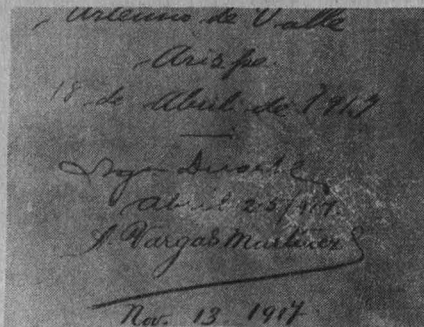 Artemio de Valle
Arispe.
18 de Abril de 1917
Duarte
Abril 25/917.
A. Vargas Martinez
Nov. 13 1917